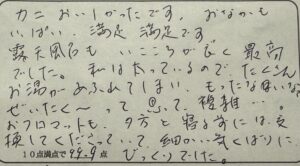 カニ おいしかったです。おなかも
いっぱい 満足 満足です
露天風呂も いごこちが良く 最高
でした。私は太っているので たくさん
お湯があふれてしまい、もったないな
ぜいたく〜って思って、複雑…。
おフロマットも 夕方と寝る前には、交
換してくださっていて、細かい気くばりに
10点満点で 99.9点 びっくりでした。